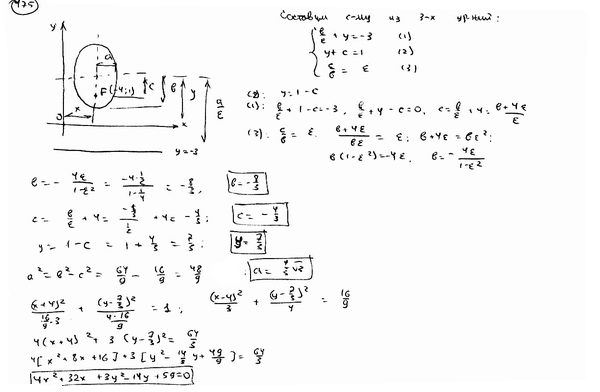 475
Составим с-му из 3-х ур-ний:
b/ε + y = -3 (1)
y + c = 1 (2)
c/b = ε (3)
y
a
F(-4;1)
c
b
y
a/ε
x
0
x
y = -3
(2): y = 1 - c
(1): b/ε + 1 - c = -3, b/ε + 4 - c = 0, c = b/ε + 4 = b+4ε/ε
(3): c/b = ε. b+4ε/bε = ε; b+4ε = bε²;
b(1-ε²) = -4ε, b = - 4ε/1-ε²
b = - 4ε/1-ε² = -4·1/2 / 1-1/4 = -8/3, b = -8/3
c = b/ε + 4 = -8/3 / 1/2 + 4 = -4/3; c = -4/3
y = 1 - c = 1 + 4/3 = 7/3; y = 7/3
a² = b² - c² = 64/9 - 16/9 = 48/9; a = 4/3 √3
(x+4)² / 16/9·3 + (y-7/3)² / 4·16/9 = 1; (x-4)²/3 + (y-7/3)²/4 = 16/9
4(x+4)² + 3(y-7/3)² = 64/3
4[x²+8x+16] + 3[y² - 14/3 y + 49/9] = 64/3
4x²+32x+3y²-14y+59=0